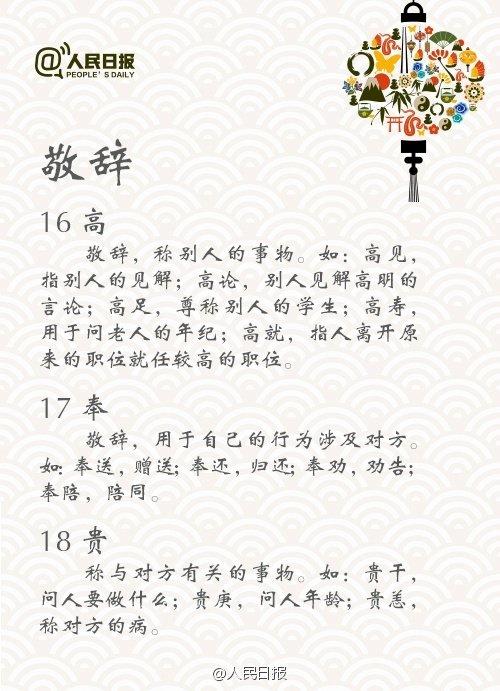 @人民日报
PEOPLE'S DAILY
敬辞
16 高
敬辞，称别人的事物。如：高见，
指别人的见解；高论，别人见解高明的
言论；高足，尊称别人的学生；高寿，
用于问老人的年纪；高就，指人离开原
来的职位就任较高的职位。
17 奉
敬辞，用于自己的行为涉及对方。
如：奉送，赠送；奉还，归还；奉劝，劝告；
奉陪，陪同。
18 贵
称与对方有关的事物。如：贵干，
问人要做什么；贵庚，问人年龄；贵恙，
称对方的病。
@人民日报